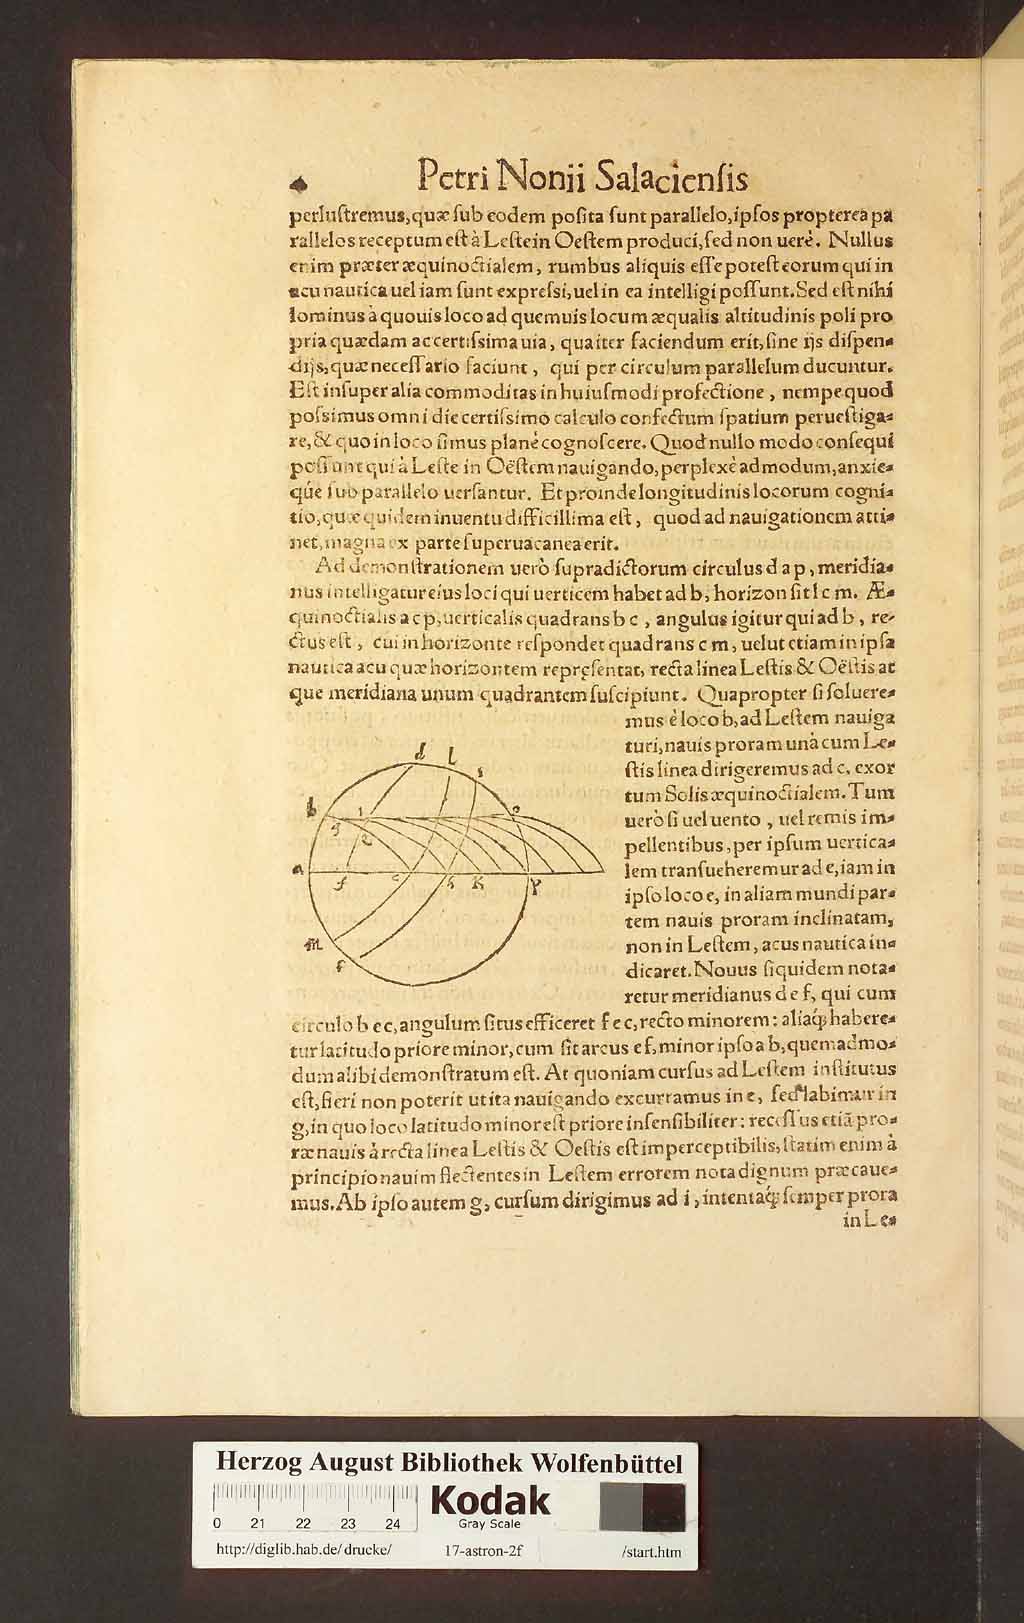 4
Petri Nonii Salacienſis
perluſtremus, quæ ſub eodem poſita ſunt parallelo, ipſos propterea pa
rallelos receptum eſt à Leſte in Oeſtem produci, ſed non uerè. Nullus
enim præter æquinoctialem, rumbus aliquis eſſe poteſt eorum qui in
acu nautica uel iam ſunt expreſsi, uel in ea intelligi poſſunt. Sed eſt nihi
lominus à quouis loco ad quemuis locum æqualis altitudinis poli pro
pria quædam ac certiſsima uia, qua iter faciendum erit, ſine ijs diſpen-
dijs, quæ neceſſario faciunt, qui per circulum parallelum ducuntur.
Eſt inſuper alia commoditas in huiuſmodi profectione, nempe quod
poſsimus omni die certiſsimo calculo confectum ſpatium perueſtiga-
re, & quo in loco ſimus planè cognoſcere. Quod nullo modo conſequi
poſſunt qui à Leſte in Oëſtem nauigando, perplexè admodum, anxie-
qúe ſub parallelo uerſantur. Et proinde longitudinis locorum cogni-
tio, quæ quidem inuentu difficillima eſt, quod ad nauigationem atti-
net, magna ex parte ſuperuacanea erit.
Ad demonſtrationem uerò ſupradictorum circulus d a p, meridia-
nus intelligatur eius loci qui uerticem habet ad b, horizon ſit l c m. Æ-
quinoctialis a c p, uerticalis quadrans b c, angulus igitur qui ad b, re-
ctus eſt, cui in horizonte reſpondet quadrans c m, uelut etiam in ipſa
nautica acu quæ horizontem repręſentat, recta linea Leſtis & Oëſtis at
que meridiana unum quadrantem ſuſcipiunt. Quapropter ſi ſoluere-
mus è loco b, ad Leſtem nauiga
turi, nauis proram unà cum Le-
ſtis linea dirigeremus ad c, exor
tum Solis æquinoctialem. Tum
uerò ſi uel uento, uel remis im-
pellentibus, per ipſum uertica-
lem tranſueheremur ad e, iam in
ipſo loco e, in aliam mundi par-
tem nauis proram inclinatam,
non in Leſtem, acus nautica in-
dicaret. Nouus ſiquidem nota-
retur meridianus d e f, qui cum
d l i o
b g 1 2
a f c h K p
m f
circulo b e c, angulum ſitus efficeret f e c, recto minorem: aliaq́; habere-
tur latitudo priore minor, cum ſit arcus e f, minor ipſo a b, quemadmo-
dum alibi demonſtratum eſt. At quoniam curſus ad Leſtem inſtitutus
eſt, fieri non poterit ut ita nauigando excurramus in e, ſed labimur in
g, in quo loco latitudo minor eſt priore inſenſibiliter: receſſus etiã pro-
ræ nauis à recta linea Leſtis & Oeſtis eſt imperceptibilis, ſtatim enim à
principio nauim flectentes in Leſtem errorem nota dignum præcaue-
mus. Ab ipſo autem g, curſum dirigimus ad i, intentaq́; ſemper prora
in Le-
Herzog August Bibliothek Wolfenbüttel
0 21 22 23 24
Kodak
Gray Scale
http://diglib.hab.de/drucke/ 17-astron-2f /start.htm